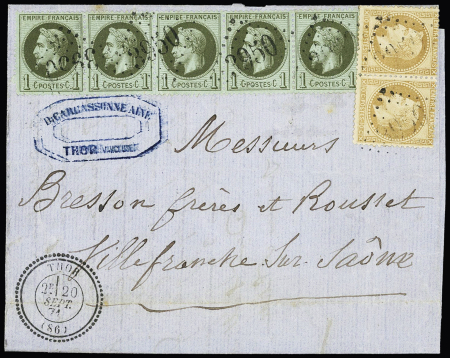 EMPIRE FRANÇAIS EMPIRE FRANÇAIS EMPIRE FRANÇAIS EMPIRE FRANÇAIS EMPIRE FRANÇAIS
1 POSTES 1 C 1 POSTES 1 C 1 POSTES 1 C 1 POSTES 1 C 1 POSTES 1 C
3950 3950
B. CARCASSONNE AINÉ
THOR
Messieurs
Bresson frères et Rousset
Villefranche-Sur-Saône
THOR
2E 20
SEPT.
71
(86)